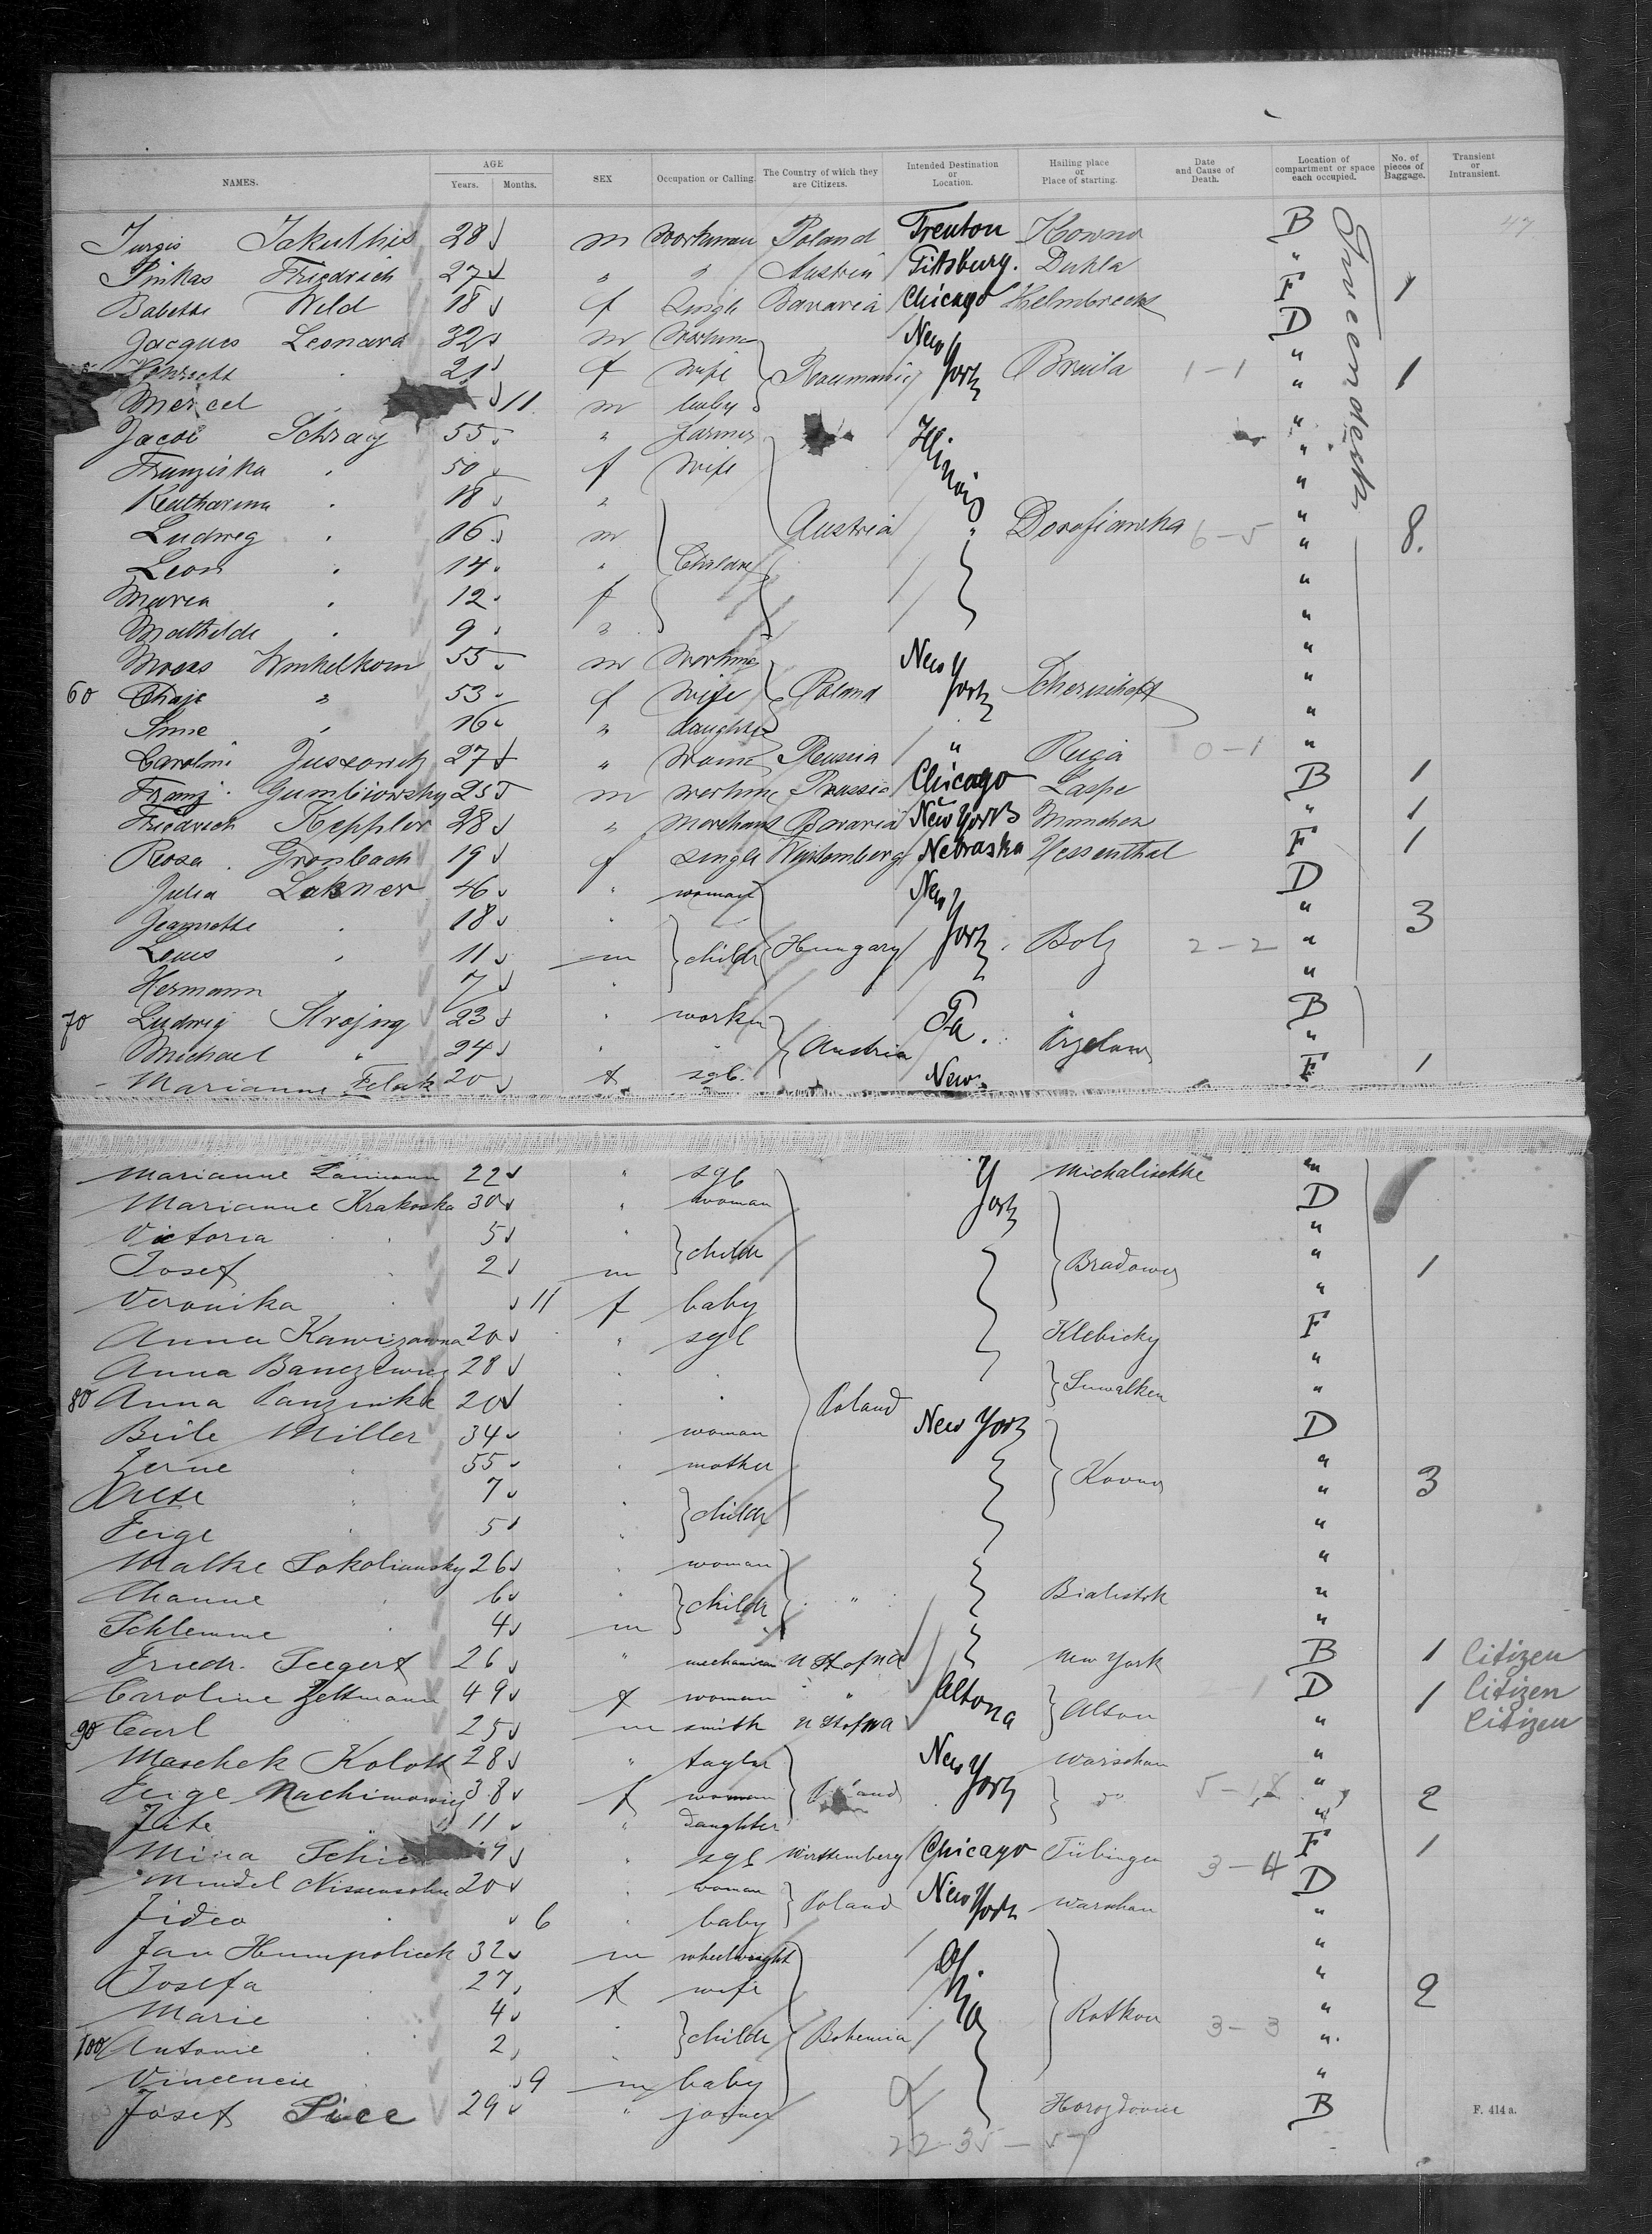 NAMES. AGE Years. Months. SEX Occupation or Calling. The Country of which they are Citizens. Intended Destination or Location. Hailing place or Place of starting. Date and Cause of Death. Location of compartment or space each occupied. No. of pieces of Baggage. Transient or Intransient.
47
Zwischendeck
Jurgis Jakuthis 28 m workman Poland Trenton Kowno B
Pinkas Friedrich 27 " " Austria Pittsburg. Dukla "
Babette Weld 18 f Single Bavaria Chicago Helmbrechts F 1
Jacques Leonard 32 m workman New D
21 f wife Roumania York Braila 1-1 " 1
Mercel 11 m baby "
Jacob Schray 55 " farmer Illinois "
Franziska 50 f wife "
Katharina 18 " "
Ludwig 16 m Austria " Dorofiowka 6-5 "
Leon 14 " Childr " 8.
Maria 12 f "
Mathilde 9 " "
Moses Winkelkorn 55 m workman New "
60 Chaje " 53 f wife Poland York "
16 " daughter "
Caroline Juszowitz 27 " woman Russia " Riga 0-1 "
Franz Gumbiowsky 25 m workme Prussia Chicago Laspe B 1
Friedrich Keppler 28 " Merchant Bavaria New York München " 1
Rosa Gronbach 19 f single Württemberg Nebraska Yessenthal F 1
Julia Lakner 46 " woman New D
Jeannette 18 " " 3
Louis 11 m childr Hungary York Bolz 2-2 "
Hermann 7 " "
70 Ludwig Strojny 23 " worker Pa. B
Michael " 24 " Austria "
Marianne Felak 20 f sgl. New F 1
Marianne 22 " sgl York Michalischke "
Marianne Krakoska 30 " woman D
Victoria 5 " childr "
Josef 2 m Bradowo " 1
Veronika 11 f baby "
Anna Kawizowna 20 " sgl Klebicky F
Anna Banczewicz 28 . . Suwalken "
80 Anna 20 . . Poland "
Beile Miller 34 . woman New York D
Zerne 55 . mother "
7 . childr Kovno " 3
Feige 5 . "
Malke Sokoliansky 26 . woman "
Channe 6 . childr " Bialistok "
Schlemme 4 m "
Friedr. Seegert 26 " mechanician U St of N A New York B 1 Citizen
Caroline Zeltmann 49 f woman " Altona Alton D 1 Citizen
90 Carl 25 m smith U St of N A " Citizen
Maschek Kolott 28 " taylor New Warschau "
Feige Nachimowicz 38 f woman Poland York do 5-18 " 2
Jute 11 " daughter "
Mina 19 . sgl Württemberg Chicago Tübingen 3-4 F 1
Mindel Nissensohn 20 . woman Poland New York Warschau D
6 . baby "
Jan Humpolicek 32 m wheelwright Ohio "
Josefa 27 f wife " 2
Marie 4 . childr Bohemia Ratkov 3-3 "
100 Antonie 2 . "
Vincencie 9 m baby "
Josef Sice 29 " joiner Horazdovice B
22 35 - 57
F. 414 a.